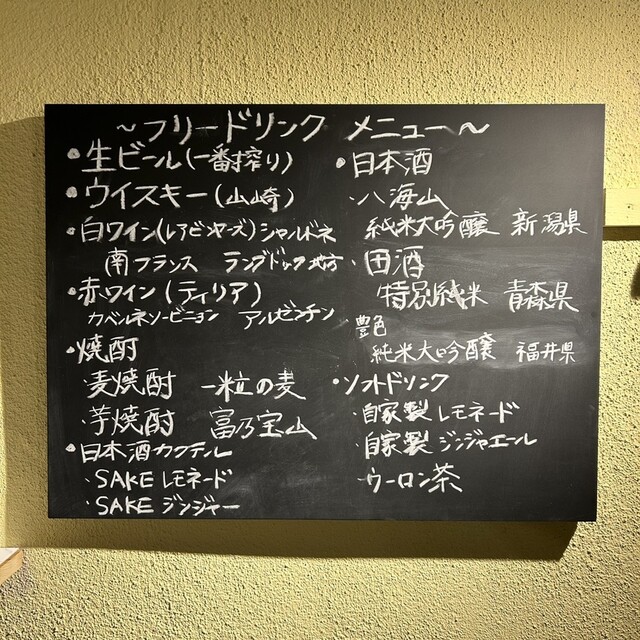 ～フリードリンク メニュー～
・生ビール(一番搾り)
・ウイスキー(山崎)
・白ワイン(レアビニャーズ)シャルドネ
南フランス ラングドック地方
・赤ワイン(ティリア)
カベルネソービニヨン アルゼンチン
・焼酎
・麦焼酎 一粒の麦
・芋焼酎 富乃宝山
・日本酒カクテル
・SAKE レモネード
・SAKE ジンジャー
・日本酒
・八海山
純米大吟醸 新潟県
・田酒
特別純米 青森県
・豊色
純米大吟醸 福井県
・ソフトドリンク
・自家製レモネード
・自家製ジンジャエール
・ウーロン茶